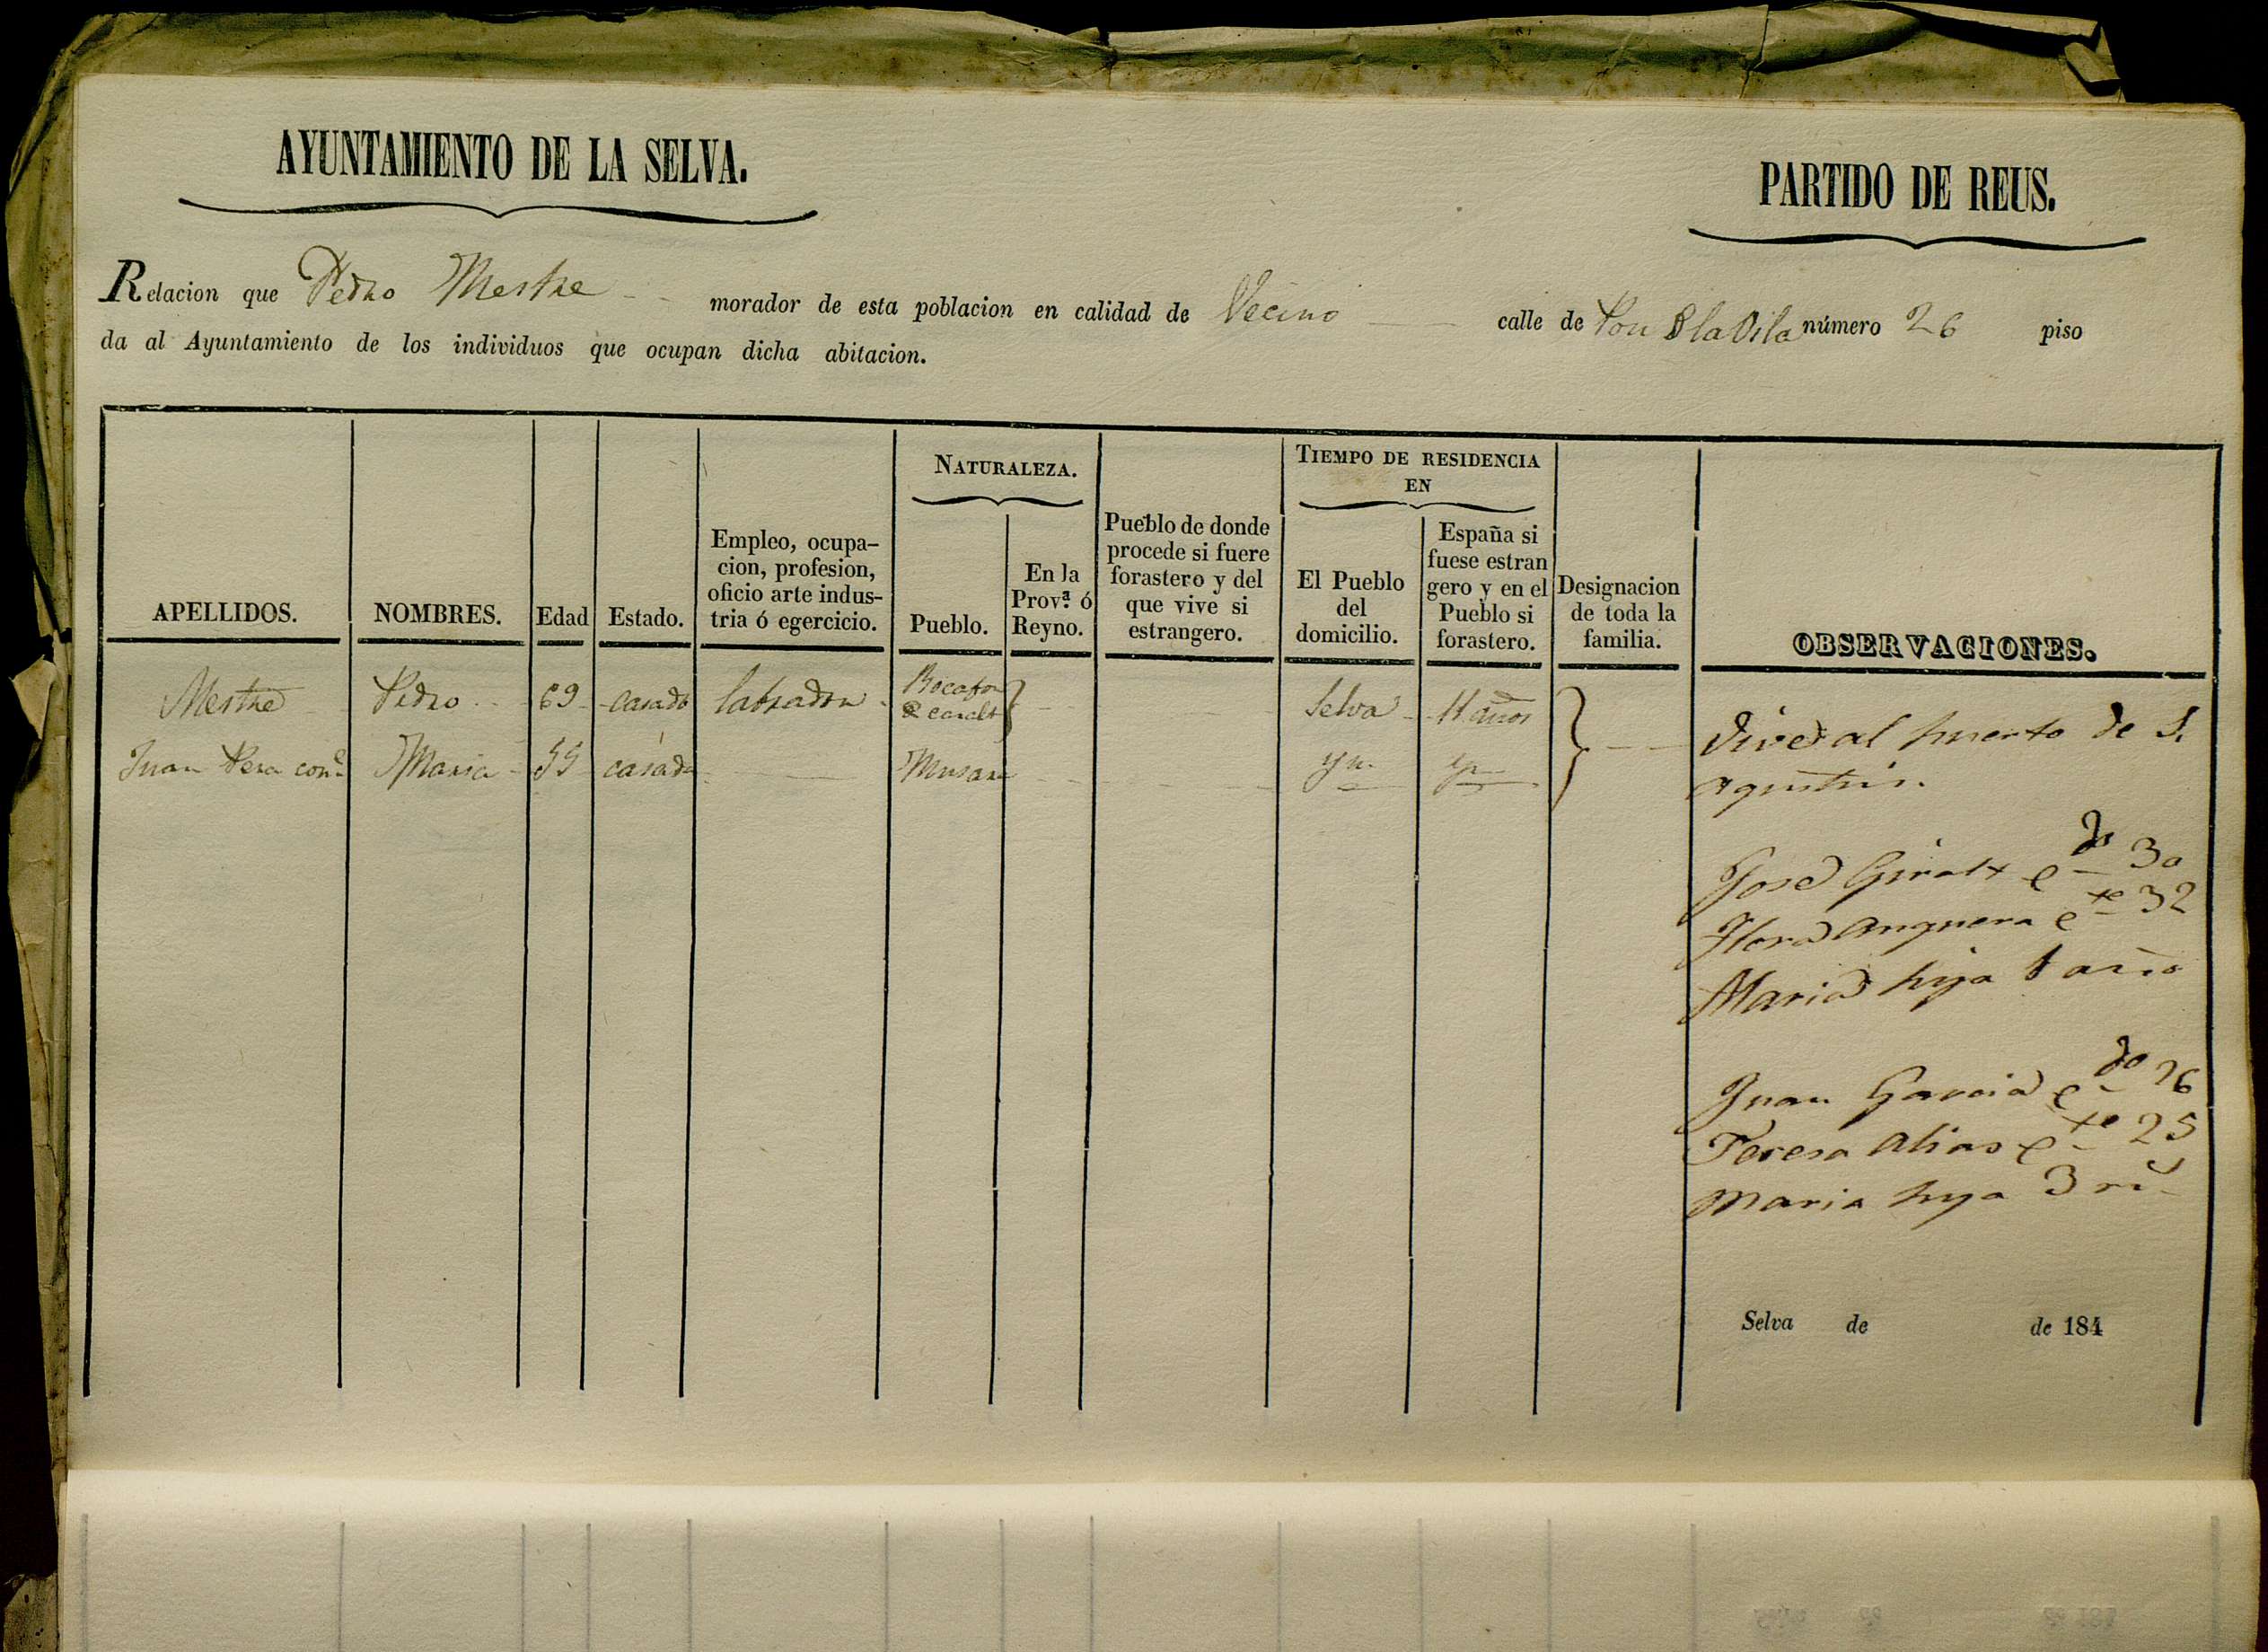 AYUNTAMIENTO DE LA SELVA.
PARTIDO DE REUS.
Relacion que Pedro Mestre morador de esta poblacion en calidad de Vecino calle de Pou de la Vila número 26 piso
da al Ayuntamiento de los individuos que ocupan dicha abitacion.
APELLIDOS.
NOMBRES.
Edad
Estado.
Empleo, ocupa-
cion, profesion,
oficio arte indus-
tria ó egercicio.
NATURALEZA.
Pueblo.
En la
Prov.ª ó
Reyno.
Pueblo de donde
procede si fuere
forastero y del
que vive si
estrangero.
TIEMPO DE RESIDENCIA
EN
El Pueblo
del
domicilio.
España si
fuese estran
gero y en el
Pueblo si
forastero.
Designacion
de toda la
familia.
OBSERVACIONES.
Mestre Pedro 69 casado labrador Rocafort Selva 11 años
Juan Pera Maria casada
Vive al huerto de S.
Agustin.
Jose Giralt c.do 30
Flora Anguera c.te 32
Maria hija 1 año
Juan Garcia c.do 26
Teresa Alias c.te 25
Maria hija 3
Selva de de 184